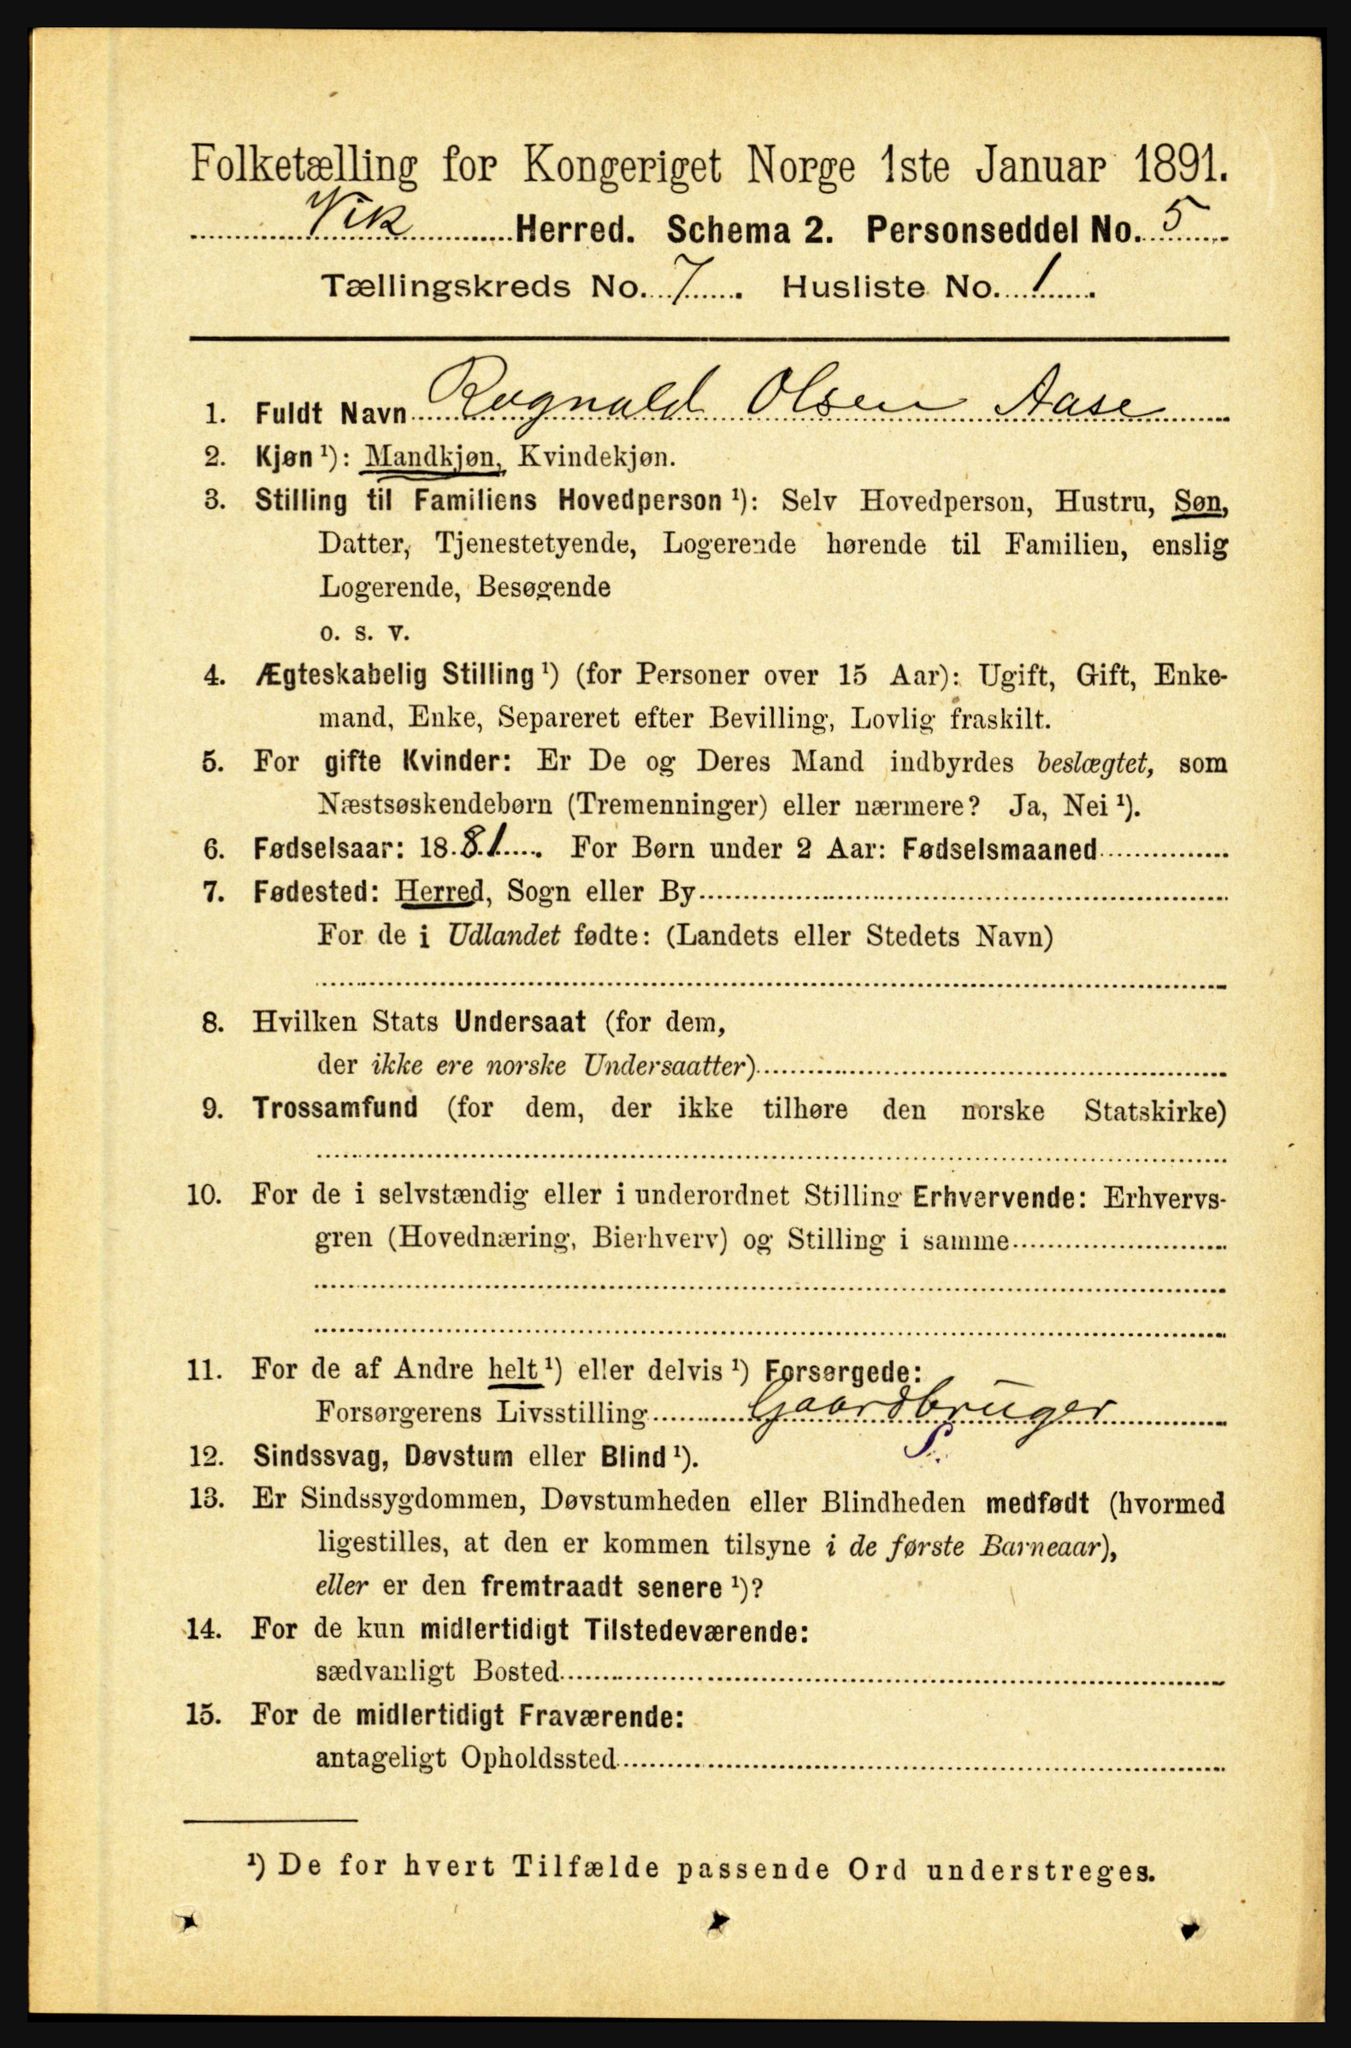 Folketælling for Kongeriget Norge 1ste Januar 1891.
Vik Herred. Schema 2. Personseddel No. 5
Tællingskreds No. 7. Husliste No. 1.
1. Fuldt Navn Rognald Olsen Aase
2. Kjøn ¹): Mandkjøn, Kvindekjøn.
3. Stilling til Familiens Hovedperson ¹): Selv Hovedperson, Hustru, Søn,
Datter, Tjenestetyende, Logerende hørende til Familien, enslig
Logerende, Besøgende
o. s. v.
4. Ægteskabelig Stilling ¹) (for Personer over 15 Aar): Ugift, Gift, Enke-
mand, Enke, Separeret efter Bevilling, Lovlig fraskilt.
5. For gifte Kvinder: Er De og Deres Mand indbyrdes beslægtet, som
Næstsøskendebørn (Tremenninger) eller nærmere? Ja, Nei ¹).
6. Fødselsaar: 1881. For Børn under 2 Aar: Fødselsmaaned
7. Fødested: Herred, Sogn eller By
For de i Udlandet fødte: (Landets eller Stedets Navn)
8. Hvilken Stats Undersaat (for dem,
der ikke ere norske Undersaatter)
9. Trossamfund (for dem, der ikke tilhøre den norske Statskirke)
10. For de i selvstændig eller i underordnet Stilling Erhvervende: Erhvervs-
gren (Hovednæring, Bierhverv) og Stilling i samme
11. For de af Andre helt ¹) eller delvis ¹) Forsørgede:
Forsørgerens Livsstilling Gaardbruger
S.
12. Sindssvag, Døvstum eller Blind ¹).
13. Er Sindssygdommen, Døvstumheden eller Blindheden medfødt (hvormed
ligestilles, at den er kommen tilsyne i de første Barneaar),
eller er den fremtraadt senere ¹)?
14. For de kun midlertidigt Tilstedeværende:
sædvanligt Bosted
15. For de midlertidigt Fraværende:
antageligt Opholdssted
¹) De for hvert Tilfælde passende Ord understreges.